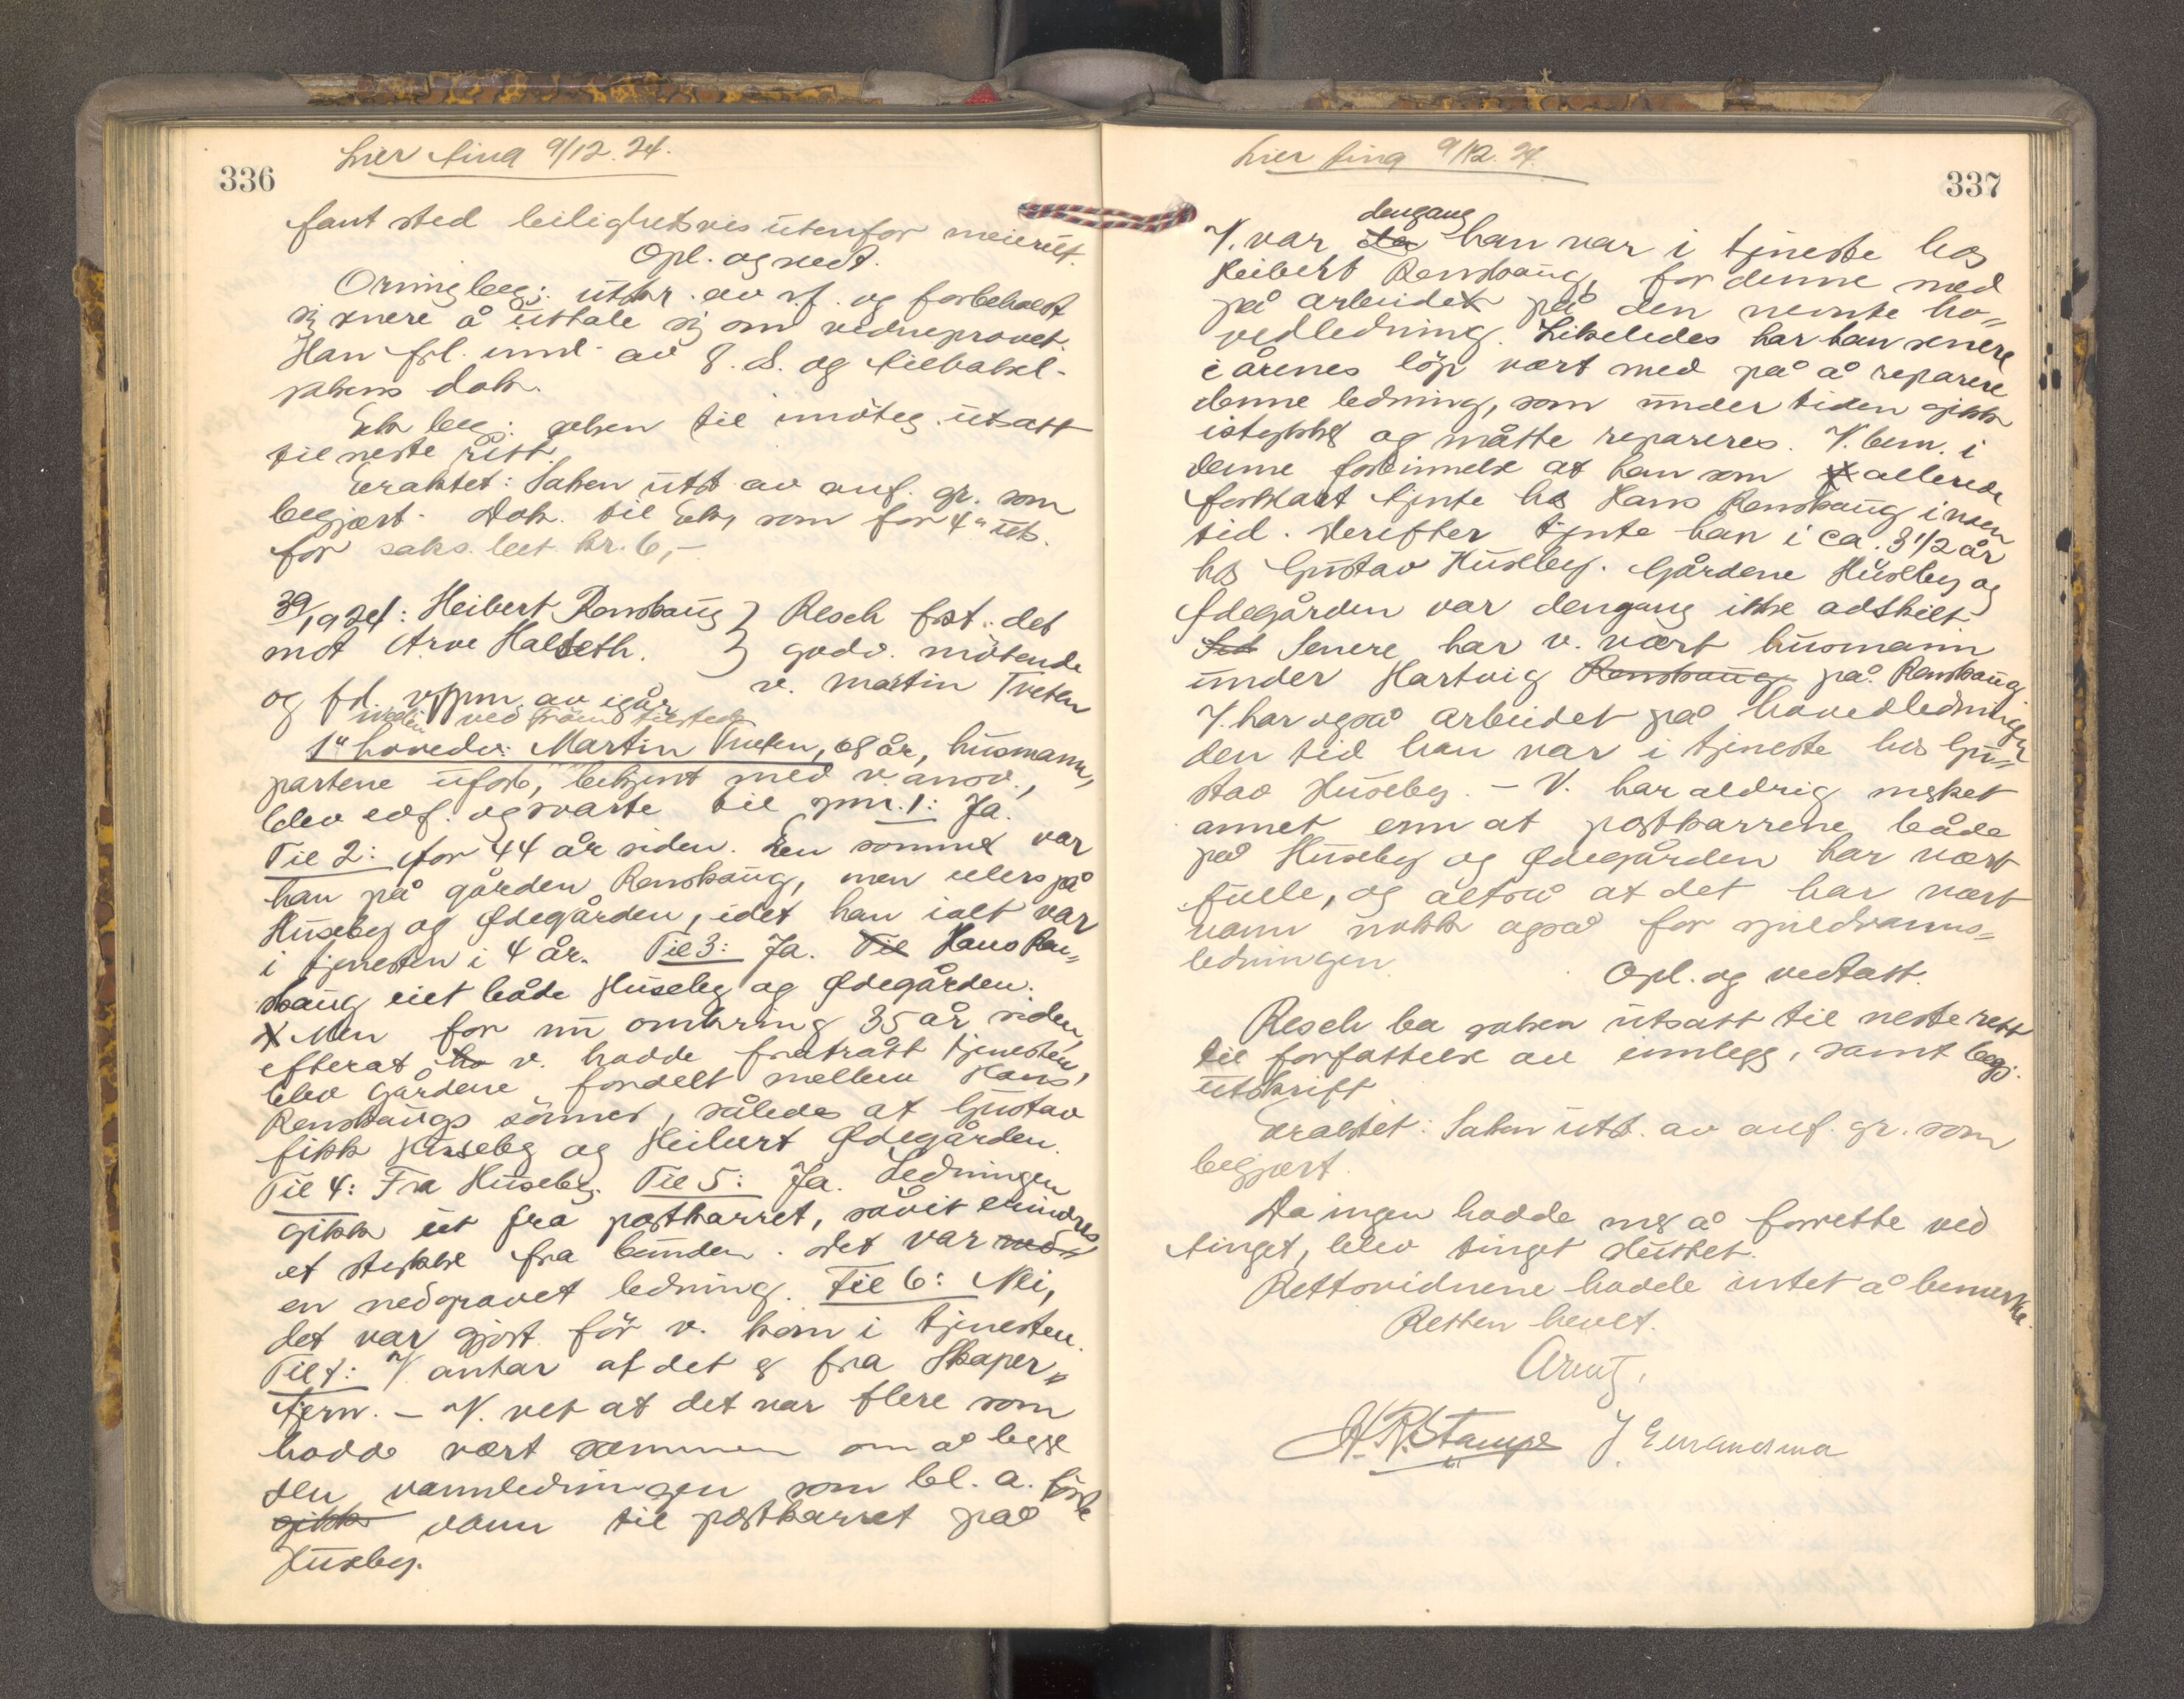 336
Lier ting 9/12.24.
fant sted leilighetsvis utenfor meieriet.
Opl. og vedt.
Orning beg: utskr. av rf. og forbeholdt
sig senere å uttale sig om vidneprovet.
Han frl. innl. av 8. ds. og tilbakel.
sakens dok.
Ek beg: saken til imøteg. utsatt
til neste rett.
Eraktet: Saken utst av anf. gr. som
begjært. Dok. til Ek, som for 4" uts.
for saks. bet. kr. 6,-
39/1924: Heibert Renskaug } Resch frst. det
mot Arve Halseth. } godv. møtende
og fl. vppm. av igår v. Martin Tveten
ved tilstede
1" hovedv: Martin Tveten, 68 år, husmann,
partene ufor., bekjent med v. ansv.,
blev edf. og svarte til spm. 1: Ja.
Til 2: for 44 år siden. En sommer var
han på gården Renskaug, men ellers på
Huseby og Ødegården, idet han ialt var
i tjenesten i 4 år. Til 3: Ja. Til Hans Ren„
skaug eiet både Huseby og Ødegården.
x Men for nu omkring 35 år siden,
efterat ho v. hadde fratrått tjenesten,
blev gårdene fordelt mellem Hans
Renskaugs sønner, således at Gustav
fikk Huseby og Heibert Ødegården.
Til 4: Fra Huseby. Til 5: Ja. Ledningen
gikk ut fra postkarret, såvit erindres
et stykke fra bunden. Det var ned„
en nedgravet ledning. Til 6: Nei,
det var gjort før v. kom i tjenesten.
Til 7: V. antar at det er fra Skaper„
tjern. – V. vet at det var flere som
hadde vært sammen om å legge
den vannledningen som bl. a. førte
gikk vann til postkarret på
Huseby.
337
Lier ting 9/12.24.
dengang
V. var da han var i tjeneste hos
Heibert Renskaug, for denne med
på arbeidet på den nevnte ho„
vedledning. Likeledes har han senere
i årenes løp vært med på å reparere
denne ledning, som under tiden gikk
istykker og måtte repareres. V. bem. i
denne forbinnelse at han som allerede
forklart tjente hos Hans Renskaug i noen
tid. Derefter tjente han i ca. 3 1/2 år
hos Gustav Huseby. Gårdene Huseby og
Ødegården var dengang ikke adskilt
Sed Senere har v. vært husmann
under Hartvig Renskaug på Renskaug
V. har også arbeidet på hovedledningen
den tid han var i tjeneste hos Gu„
stav Huseby. – V. har aldrig merket
annet enn at postkarrene både
på Huseby og Ødegården har vært
fulle, og altså at det har vært
vann nokk også for spildvanns„
ledningen
Opl. og vedtatt.
Resch ba saken utsatt til neste rett
til forfattelse av innlegg, samt begj.
utskrift
Eraktet: Saken utst. av anf. gr. som
begjært.
Da ingen hadde mer å forrette ved
tinget, blev tinget sluttet.
Rettsvidnene hadde intet å bemerke.
Retten hevet.
H. R. Stampe